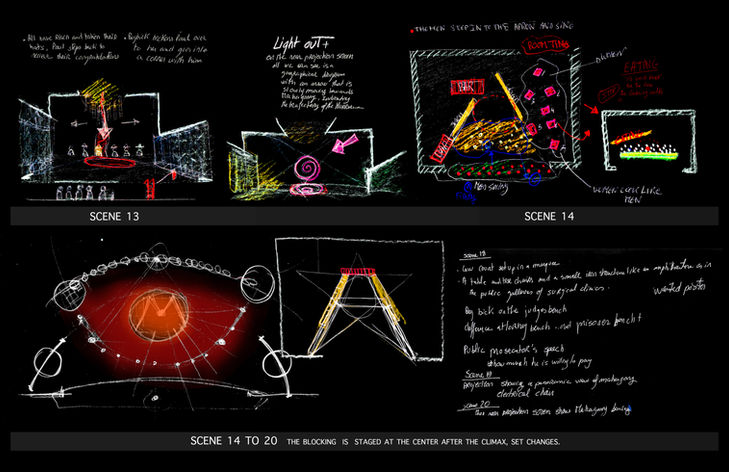 • All have risen and taken their
hats, Paul steps back to
receive their congratulations
• Bigbick beckons Paul over
to him and goes into
a corner with him
Light out +
on the rear projection screen
all we can see is a
geographical diagram
with an arrow that is
slowly moving towards
Mahagonny, indicating
the path of the Hurricane
• THE MEN STEP INTO THE APRON AND SING
BOOM TING
BAR
WOMEN
EATING
Men Sitting
WOMEN LOOK LIKE
MEN
SCENE 13
SCENE 14
Scene 18
• Law Court set up in a marquee
• A table and three chairs and a small iron structure like an amphitheatre as in
the public galleries of surgical clinics.
wanted poster
Big bick on the judges bench
defence attorney bench and prisoner bench
Public prosecutor's speech
show much he is willing to pay
Scene 19
Projection showing a panoramic view of mahagonny
electrical chair
scene 20
The rear projection screen show Mahagonny burning
SCENE 14 TO 20 THE BLOCKING IS STAGED AT THE CENTER AFTER THE CLIMAX, SET CHANGES.